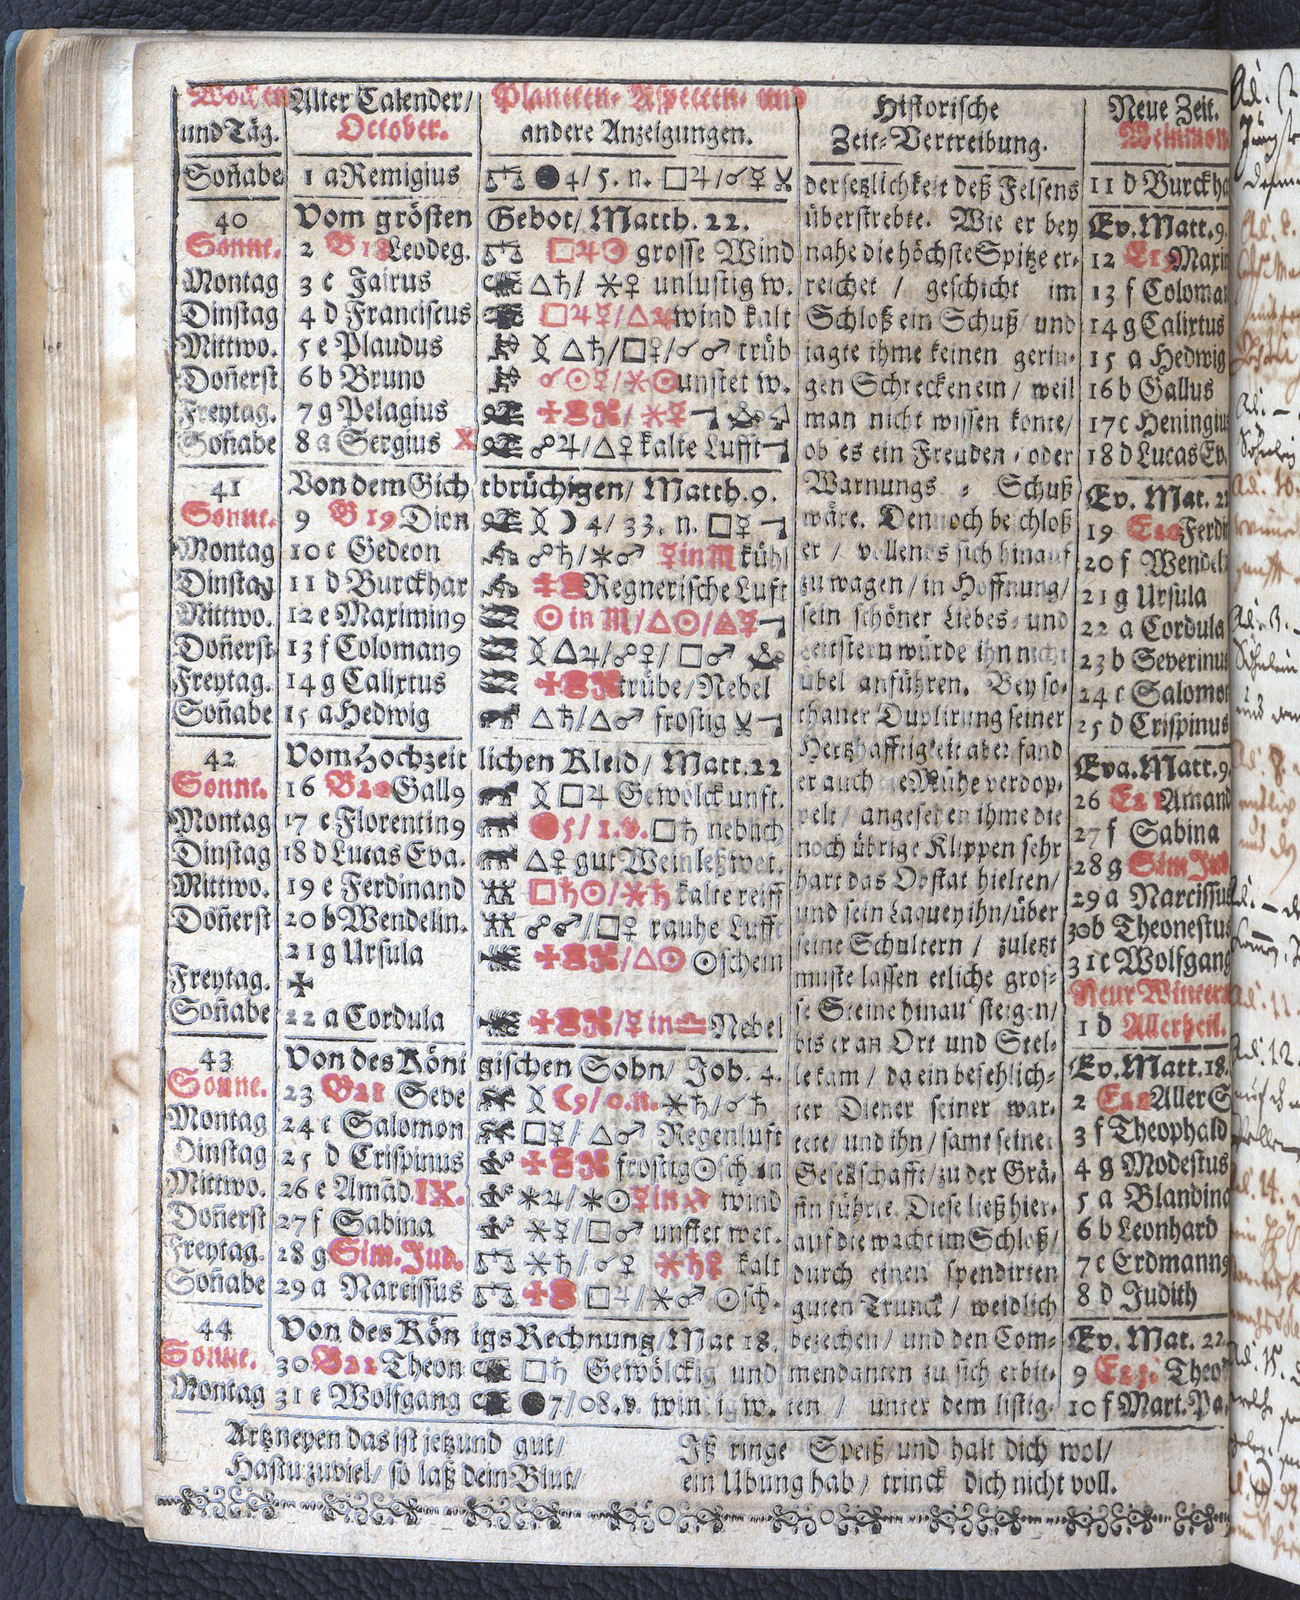 Wochen Alter Calender/ Planeten- Aspecten- und Historische Neue Zeit.
und Täg. October. andere Anzeigungen. Zeit-Vertreibung. Weinmon.
Soñabe 1 a Remigius ♎ ●4/5. n. □♃/☌☿ dersetzlichkeit deß Felsens 11 d Burckha
40 Vom grösten Gebot/ Matth. 22. überstrebte. Wie er bey Ev. Matt. 9.
Sonne. 2 B 18 Leodeg. ♎ □♃☉ grosse Wind nahe die höchste Spitze er- 12 E19 Maxim
Montag 3 c Jairus △♄/ ✶♀ unlustig w. reichet / geschicht im 13 f Coloman
Dinstag 4 d Franciscus □♃☿/△♃ wind kalt Schloß ein Schuß/ und 14 g Calixtus
Mittwo. 5 e Plaudus △♄/□♀/☌♂ trüb jagte ihme keinen gerin- 15 a Hedwig
Doñerst 6 b Bruno ☌☉☿/✶☉ unstet w. gen Schrecken ein / weil 16 b Gallus
Freytag. 7 g Pelagius ✶☿ man nicht wissen konte/ 17 c Heningius
Soñabe 8 a Sergius X ☍♃/△♀ kalte Lufft ob es ein Freuden - oder 18 d Lucas Ev.
41 Von dem Gichtbrüchigen/ Matth. 9. Warnungs - Schuß Ev. Mat. 22
Sonne. 9 B 19 Dion ☽ 4/ 33. n. □☿ wäre. Dennoch beschloß 19 E20 Ferdin
Montag 10 c Gedeon ☍♄/✶♂ ☿ in ♏ kühl er / vollends sich hinauf 20 f Wendel
Dinstag 11 d Burckhar Regnerische Luft zu wagen/ in Hoffnung/ 21 g Ursula
Mittwo. 12 e Maximin9 ☉ in ♏/△☉/△☿ sein schöner Liebes- und 22 a Cordula
Doñerst 13 f Coloman9 △♃/☍♀/ □♂ Leitstern würde ihn nicht 23 b Severinus
Freytag. 14 g Calixtus trübe/ Nebel übel anführen. Bey so- 24 c Salomon
Soñabe 15 a Hedwig △♄/△♂ frostig thaner Duplirung seiner 25 d Crispinus
42 Vom Hochzeitlichen Kleid/ Matt. 22 Hertzhafftigkeit aber fand Eva. Matt. 9.
Sonne. 16 B20 Gall9 □♃ Gewölck unst. er auch die Mühe verdop- 26 E21 Amand
Montag 17 c Florentin9 ●5/ 1. v. □♄ neblich pelt/ angesehen ihme die 27 f Sabina
Dinstag 18 d Lucas Eva. △♀ gut Weinleß wet. noch übrige Klippen sehr 28 g Sim Jud
Mittwo. 19 e Ferdinand □♄☉/✶♄ kalte reiff hart das Obstat hielten/ 29 a Narcissus
Doñerst 20 b Wendelin. ☍♂/□♀ rauhe Lufft und sein Laquey ihn/ über 30 b Theonestus
21 g Ursula △☉ ☉schein seine Schultern / zuletzt 31 c Wolfgang
Freytag. ✠ muste lassen etliche gros- Neue Winterm
Soñabe 22 a Cordula ☿ in ♎ Nebel se Steine hinauf steigen/ 1 d Allerheil.
bis er an Ort und Stel-
43 Von des Königischen Sohn/ Joh. 4. le kam / da ein befehlich- Ev. Matt. 18.
Sonne. 23 B21 Seve ☾9/ 0. n. ✶♄/☌♄ ter Diener seiner war- 2 E22 Aller S
Montag 24 c Salomon □☿/ △♂ Regenluft tete/ und ihn / samt seiner 3 f Theophald
Dinstag 25 d Crispinus frostig ☉schein Gesellschafft/ zu der Grä- 4 g Modestus
Mittwo. 26 e Amãd. IX. ✶♃/✶☉ ☿ in ♐ wind fin führte. Diese ließ hier- 5 a Blandina
Doñerst 27 f Sabina ✶☿/□♂ unstet wet. auf die wacht im Schloß/ 6 b Leonhard
Freytag. 28 g Sim. Jud. ♎ ✶♄/☌♀ ✶♄☿ kalt durch einen spendirten 7 c Erdmann9
Soñabe 29 a Narcissus ♎ □♃/✶♂ ☉sch. guten Trunck / weidlich 8 d Judith
44 Von des Königs Rechnung/ Mat 18. bezechen / und den Com- Ev. Mat. 22.
Sonne. 30 B22 Theon □♄ Gewölckig und mendanten zu sich erbit- 9 E23. Theo
Montag 31 c Wolfgang ●7/08. v. win. i. w. ten / unter dem listig- 10 f Mart. Pa.
Artzneyen das ist jetzund gut/ Iß ringe Speiß/ und halt dich wol/
Hastu zuviel/ so laß dein Blut/ ein Ubung hab/ trinck dich nicht voll.